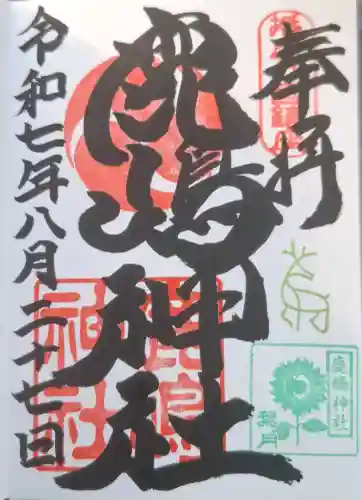 奉拝
鹿嶋神社
令和七年八月二十七日
鹿島
神社
鹿嶋神社
葉月